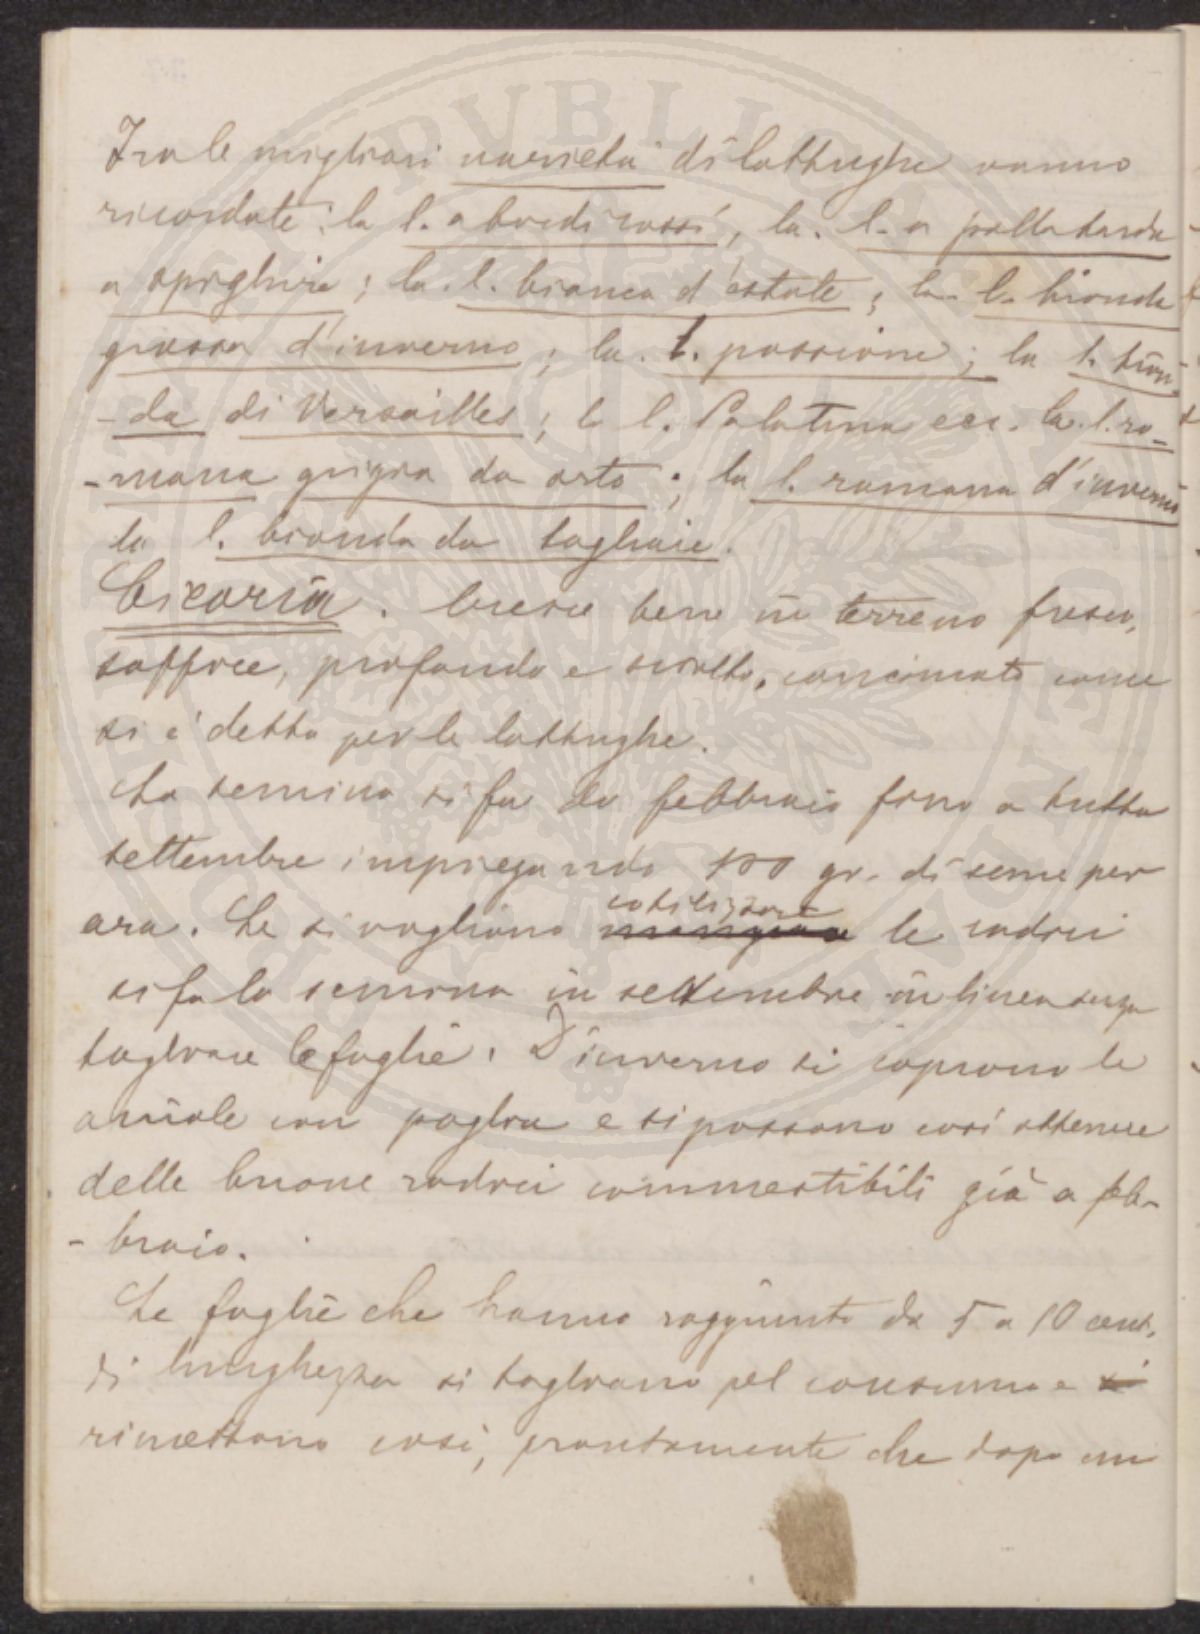 Tra le migliori varietà di lattughe vanno
ricordate: la l. a bordi rossi, la l. a palla tarda
a spighire; la l. bianca d'estate; la l. bionda
grossa d'inverno; la l. passione; la l. bion-
-da di Versailles; la l. Palatina ecc. la l. ro-
-mana grigia da orto; la l. romana d'inverno
la l. bionda da tagliare.
Cicoria. Cresce bene in terreno fresco,
soffice, profondo e sciolto, concimato come
si è detto per le lattughe.
La semina si fa da febbraio fino a tutto
settembre impiegando 100 gr. di seme per
utilizzare
ara. Se si vogliono mangiare le radici
si fa la semina in settembre in linea senza
tagliare le foglie. D'inverno si coprono le
aiuole con paglia e si possono così ottenere
delle buone radici commestibili già a feb-
-braio.
Le foglie che hanno raggiunto da 5 a 10 cent.
di lunghezza si tagliano pel consumo e si
rimettono così, prontamente che dopo un